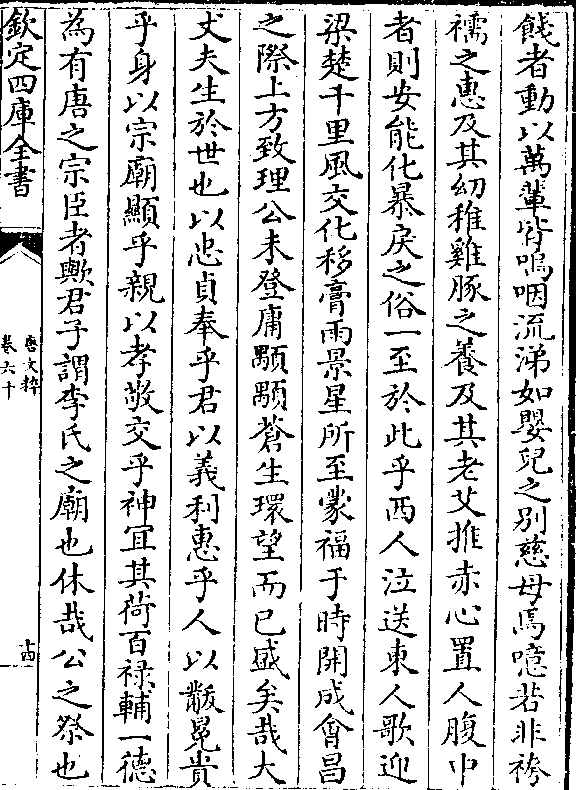 餞者動以萬輩皆嗚咽流涕如嬰兒之别慈母焉噫若非袴
襦之惠及其幼稚雞豚之養及其老艾推赤心置人腹中
者則安能化暴戾之俗一至於此乎西人泣送東人歌迎
梁楚千里風交化移膏雨景星所至蒙福于時開成會昌
之際上方致理公未登庸顒顒蒼生環望而已盛矣哉大
丈夫生於世也以忠貞奉乎君以義利惠乎人以黻冕貴
乎身以宗廟顯乎親以孝敬交乎神宜其荷百禄輔一德
為有唐之宗臣者歟君子謂李氏之廟也休哉公之祭也
欽定四庫全書
唐文粹
卷六十
十四